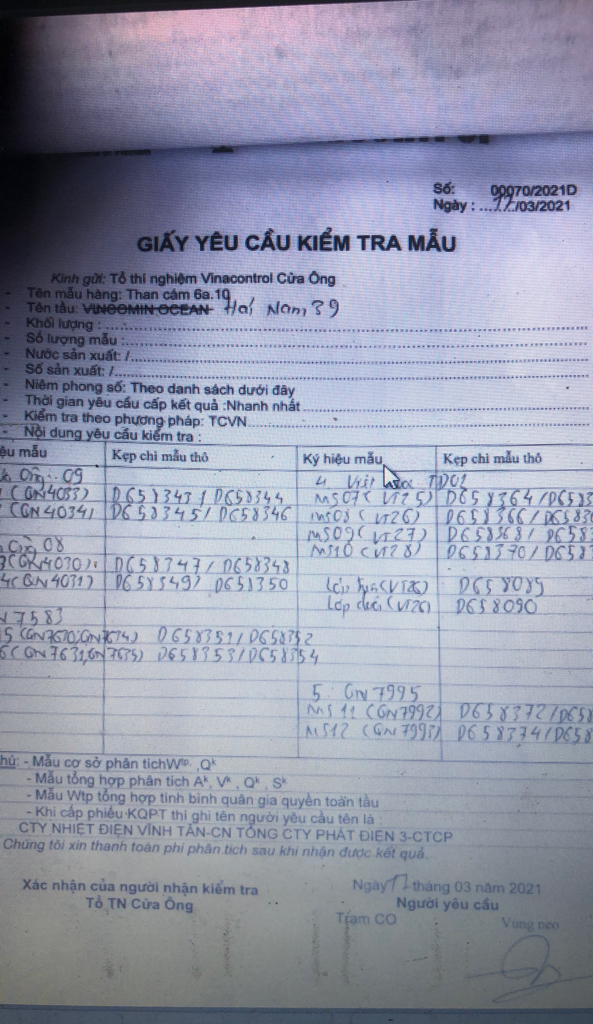 Số: 00070/2021D
Ngày : ...17/03/2021
GIẤY YÊU CẦU KIỂM TRA MẪU
Kính gửi: Tổ thí nghiệm Vinacontrol Cửa Ông
- Tên mẫu hàng: Than cám 6a.10
- Tên tàu: VINCOMIN OCEAN Hải Nam 39
- Khối lượng :
- Số lượng mẫu :
- Nước sản xuất: /
- Số sản xuất: /
- Niêm phong số: Theo danh sách dưới đây
- Thời gian yêu cầu cấp kết quả :Nhanh nhất
- Kiểm tra theo phương pháp: TCVN
- Nội dung yêu cầu kiểm tra :
ệu mẫu Kẹp chì mẫu thô Ký hiệu mẫu Kẹp chì mẫu thô
09 4 TD01
(GN4033) D658343 / D658344 MS07 (VT25) D658364 /D6583
(GN4034) D658345 / D658346 MS08 (VT26) D658366 /D6583
MS09 (VT27) D658368 / D6583
08 MS10 (VT28) D658370 / D6583
(GN4030) D658347 / D658348
4 (GN4031) D658349 / D658350 Lớp trên (VT26) D658089
Lớp dưới (VT26) D658090
N 7583
5 (GN7630,GN7634) D658351 / D658352
6 (GN7631,GN7635) D658353 / D658354
5. GN 7995
MS 11 (GN7992) D658372 /D658
MS12 (GN7993) D658374 /D658
hú: - Mẫu cơ sở phân tích Wtp, Qk
- Mẫu tổng hợp phân tích Ak, Vk, Qk, Sk
- Mẫu Wtp tổng hợp tính bình quân gia quyền toàn tàu
- Khi cấp phiếu KQPT thì ghi tên người yêu cầu tên là :
CTY NHIỆT ĐIỆN VĨNH TÂN-CN TỔNG CTY PHÁT ĐIỆN 3-CTCP
Chúng tôi xin thanh toán phí phân tích sau khi nhận được kết quả.
Xác nhận của người nhận kiểm tra
Tổ TN Cửa Ông
Ngày 17 tháng 03 năm 2021
Người yêu cầu
Trạm CO Vùng neo